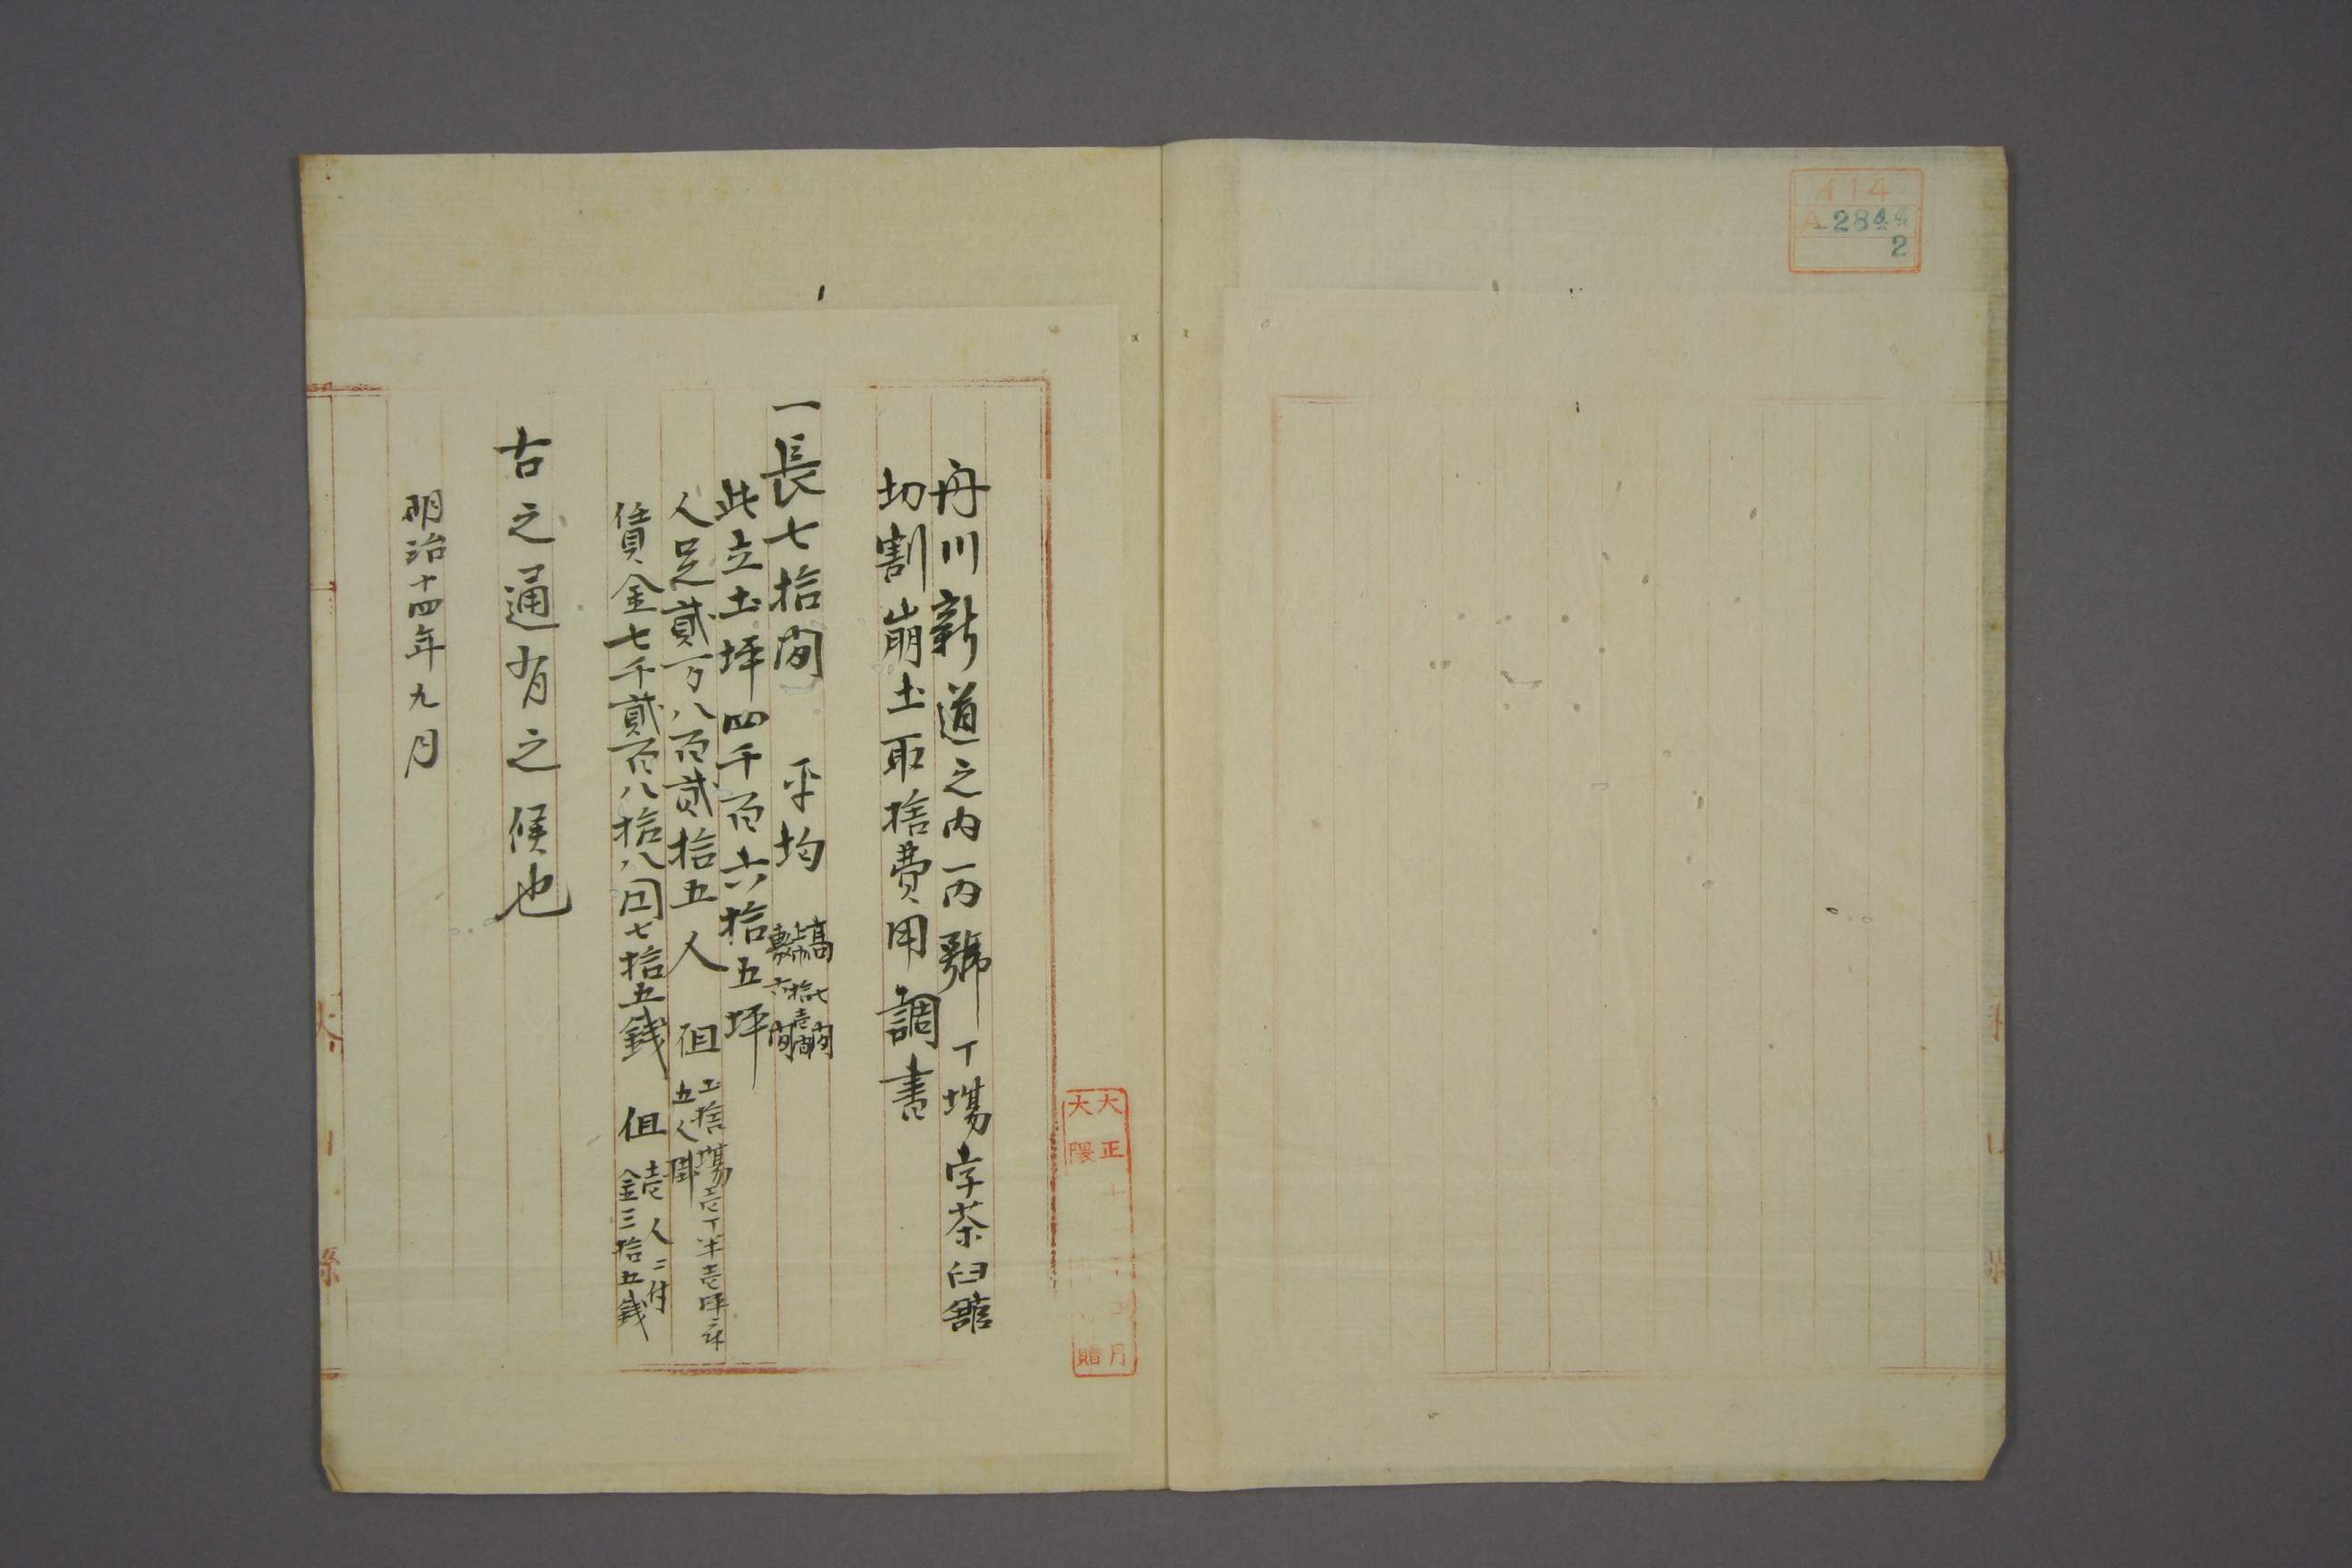 イ14
A2844
2
舟川新道之内丙號丁場字茶臼舘
切割崩土取捨費用調書
一長七拾間 平均 高七間
上幅拾壱間
敷六間
此立土坪四千百六拾五坪
人足貳万八百貳拾五人 但 土捨場壱丁半壱坪ニ付
五人掛
賃金七千貳百八拾八円七拾五銭 但 壱人ニ付
金三拾五銭
右之通有之候也
明治十四年九月
大正 月
大隈 贈